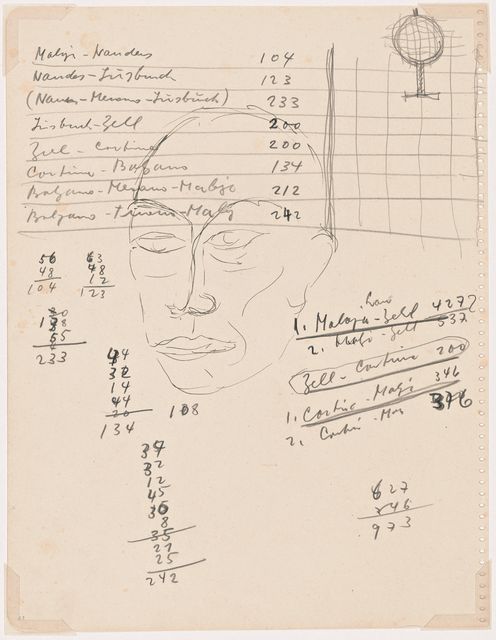 Maloja - Nauders 104
Nauders - Insbruck 123
(Nauders - Merano - Insbruck) 233
Insbruck - Zell 200
Zell - Cortina 200
Cortina - Bolzano 134
Bolzano - Merano - Maloja 212
Bolzano - Tirano - Maloja 242
56
48
104
63
48
12
123
55
233
44
32
14
44
20
134
108
32
12
45
30
8
35
27
25
242
1. Maloja - Zell 427
2. Maloja - Zell 537
Zell - Cortina 200
1. Cortina - Maloja 346
2. Cortina - Maloja 376
627
346
973